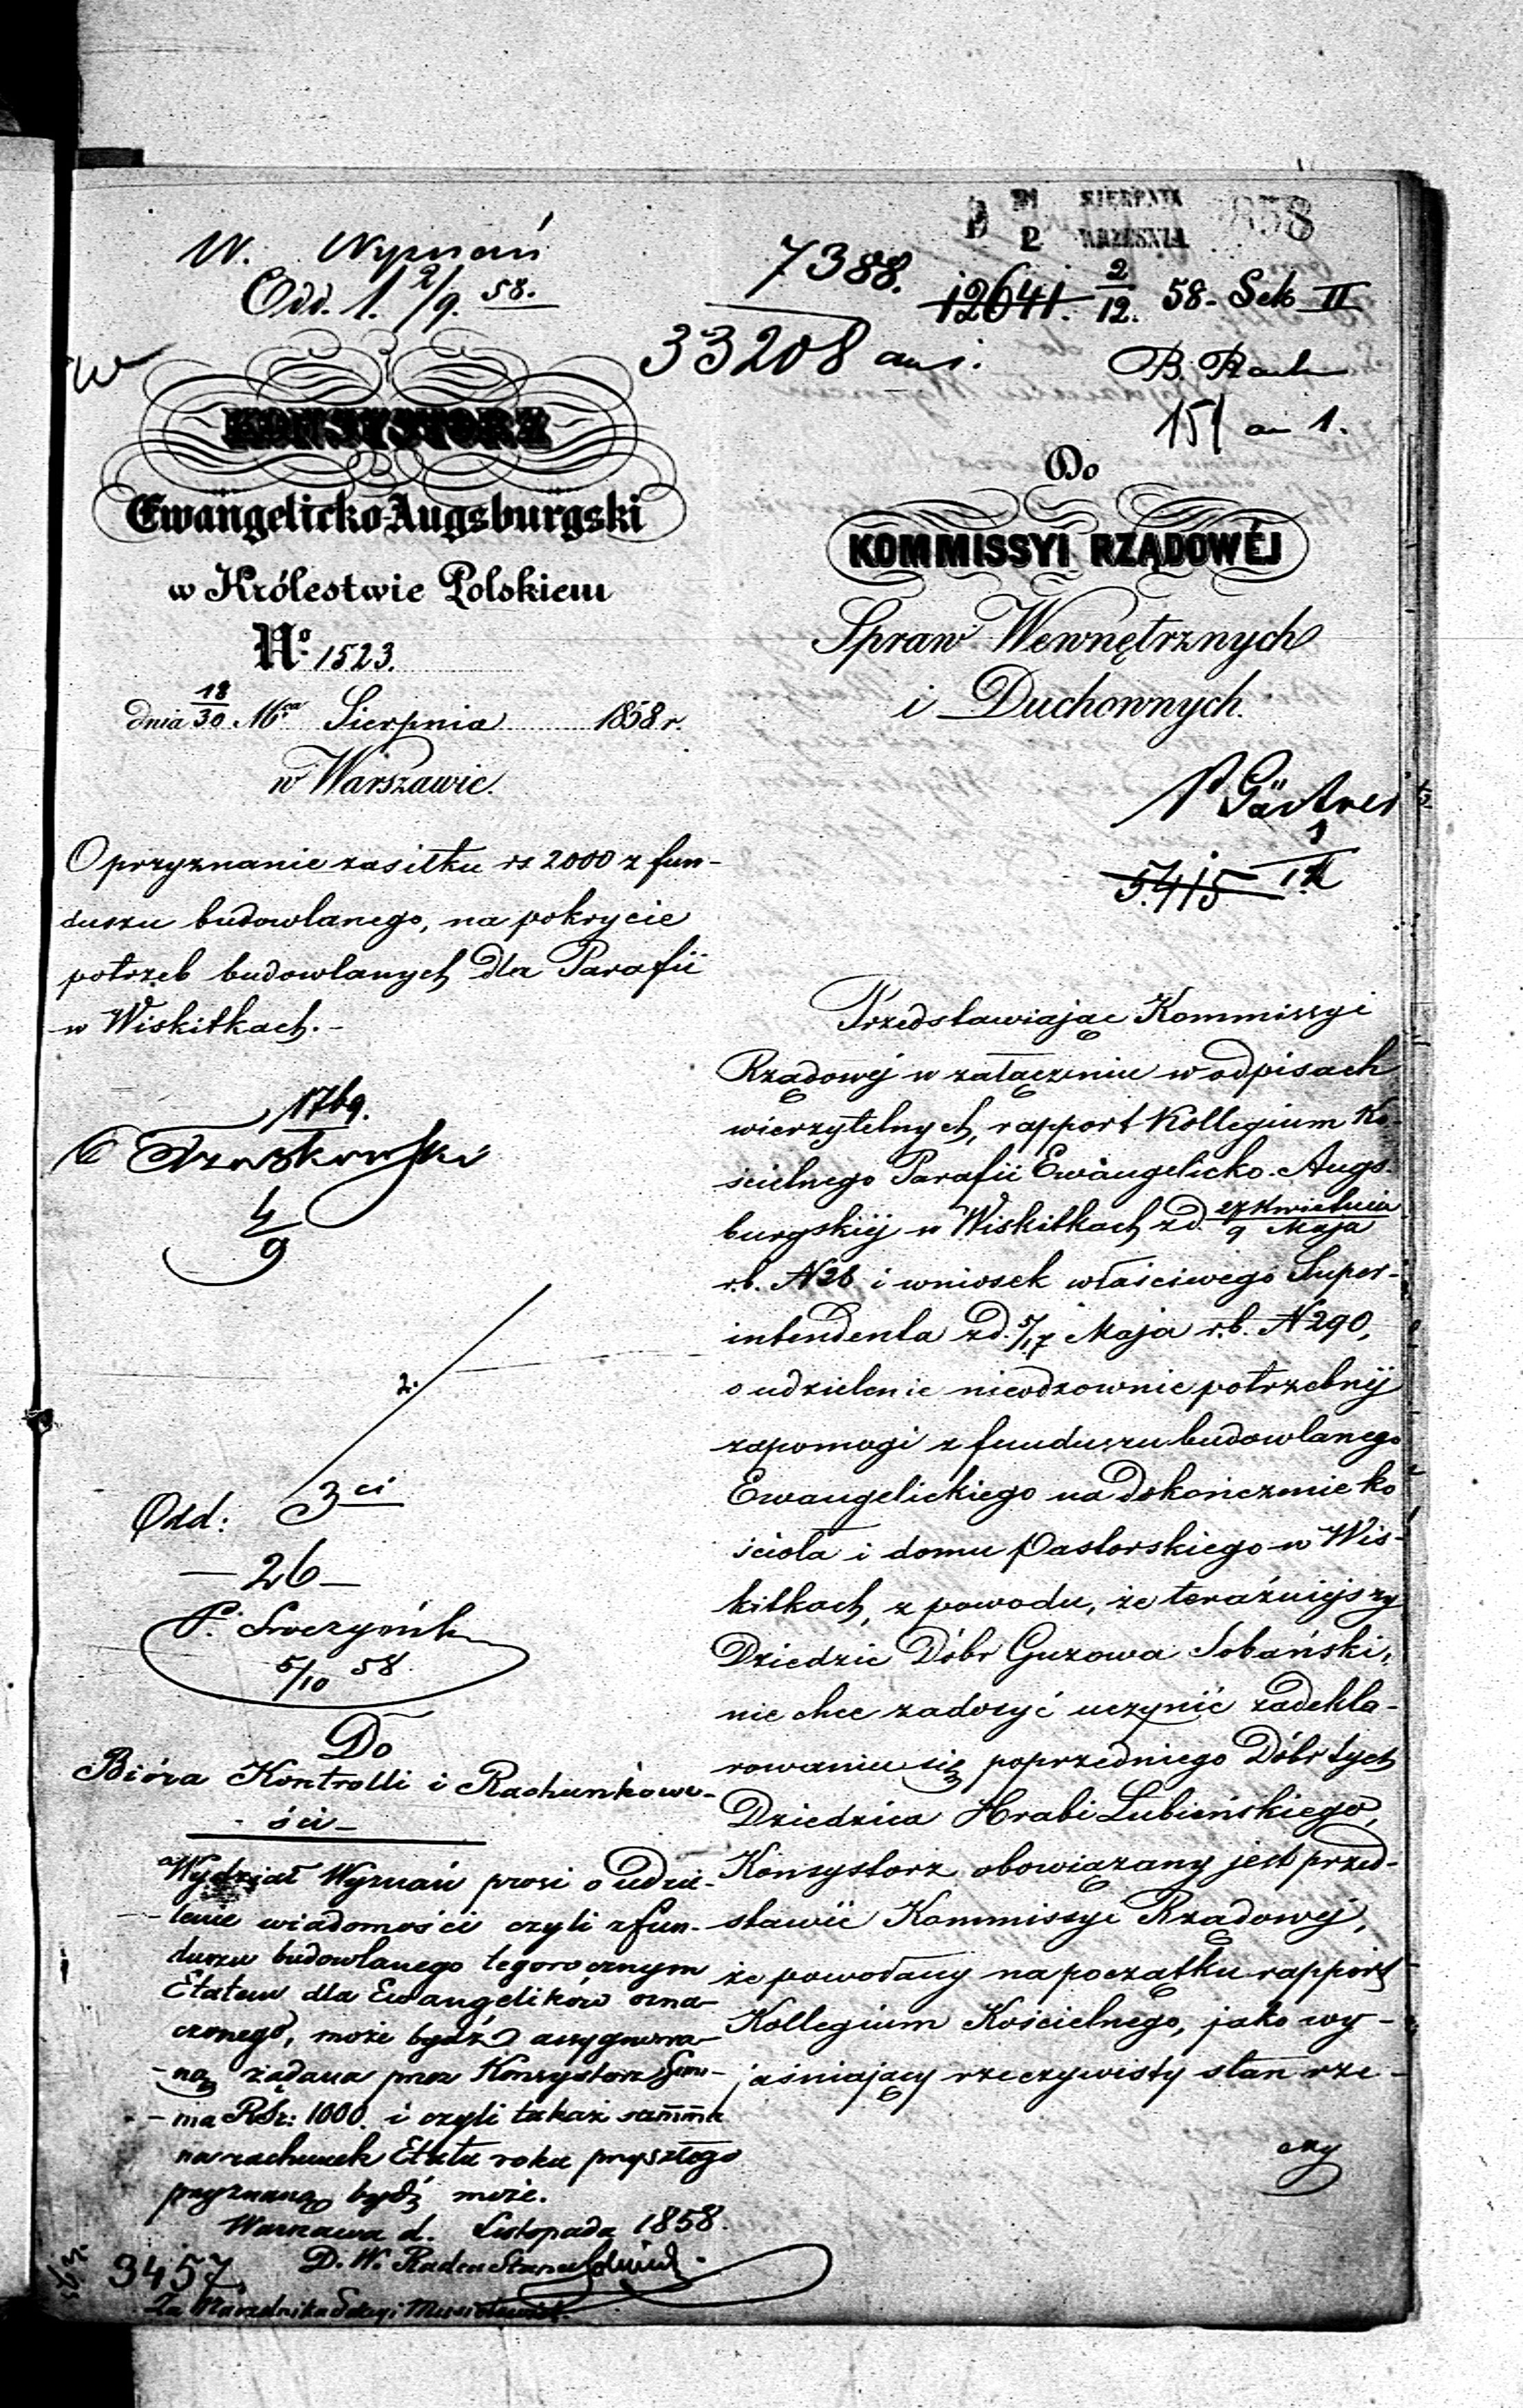 W. Wyznań
Odd. 1. 2/9. 58.
SIERPNIA
2 WRZEŚNIA 1858
7388.
12641. 2/12. 58 - Sek II
33208 an i.
B. Rach
151 an 1.
KONSYSTORZ
Ewangelicko-Augsburgski
w Królestwie Polskiem
No. 1523.
dnia 18/30 Mca Sierpnia 1858 r.
w Warszawie.
O przyznanie zasiłku rs 2000 z fun-
duszu budowlanego, na pokrycie
potrzeb budowlanych dla Parafii
w Wiskitkach.-
1769.
4/9
2.
Odd: 3ci
- 26 -
5/10 58
Do
Bióra Kontrolli i Rachunkowo-
ści -
Wydział Wyznań prosi o udzie-
lenie wiadomości czyli z fun-
duszu budowlanego tegorocznym
Etatem dla Ewangelików ozna-
czonego, może bydź assygnowa-
-ną żądana przez Konsystorz Sum-
-ma RSr: 1000. i czyli takaż summa
na rachunek Etatu roku przyszłego
przyznaną bydź może.
Warszawa d. Listopada 1858.
D. W. Radca Stanu
3457.
Za Naczelnika Sekcyi
Do
KOMMISSYI RZĄDOWÉJ
Spraw Wewnętrznych
i Duchownych.
P Gärtner
5415
Przedstawiając Kommissyi
Rządowéj w załączeniu w odpisach
wierzytelnych, rapport Kollegium Ko-
ścielnego Parafii Ewangelicko-Augs-
burgskiéj w Wiskitkach z d. 27 Kwietnia/9 Maja
r.b. N 28 i wniosek właściwego Super-
intendenta z d. 5/17 Maja r.b. N 290,
o udzielenie nieodzownie potrzebnéj
zapomogi z funduszu budowlanego
Ewangelickiego na dokończenie ko
ścioła i domu Pastorskiego w Wis-
kitkach, z powodu, że teraźniejszy
Dziedzic Dóbr Guzowa Sobański,
nie chce zadosyć uczynić zadekla-
rowaniu się poprzedniego Dóbr tych
Dziedzica Hrabi Łubieńskiego,
Konsystorz obowiązany jest przed-
stawić Kommissyi Rządowéj,
że powołany na początku rapport
Kollegium Kościelnego, jako wy-
jaśniający rzeczywisty stan rze-
czy